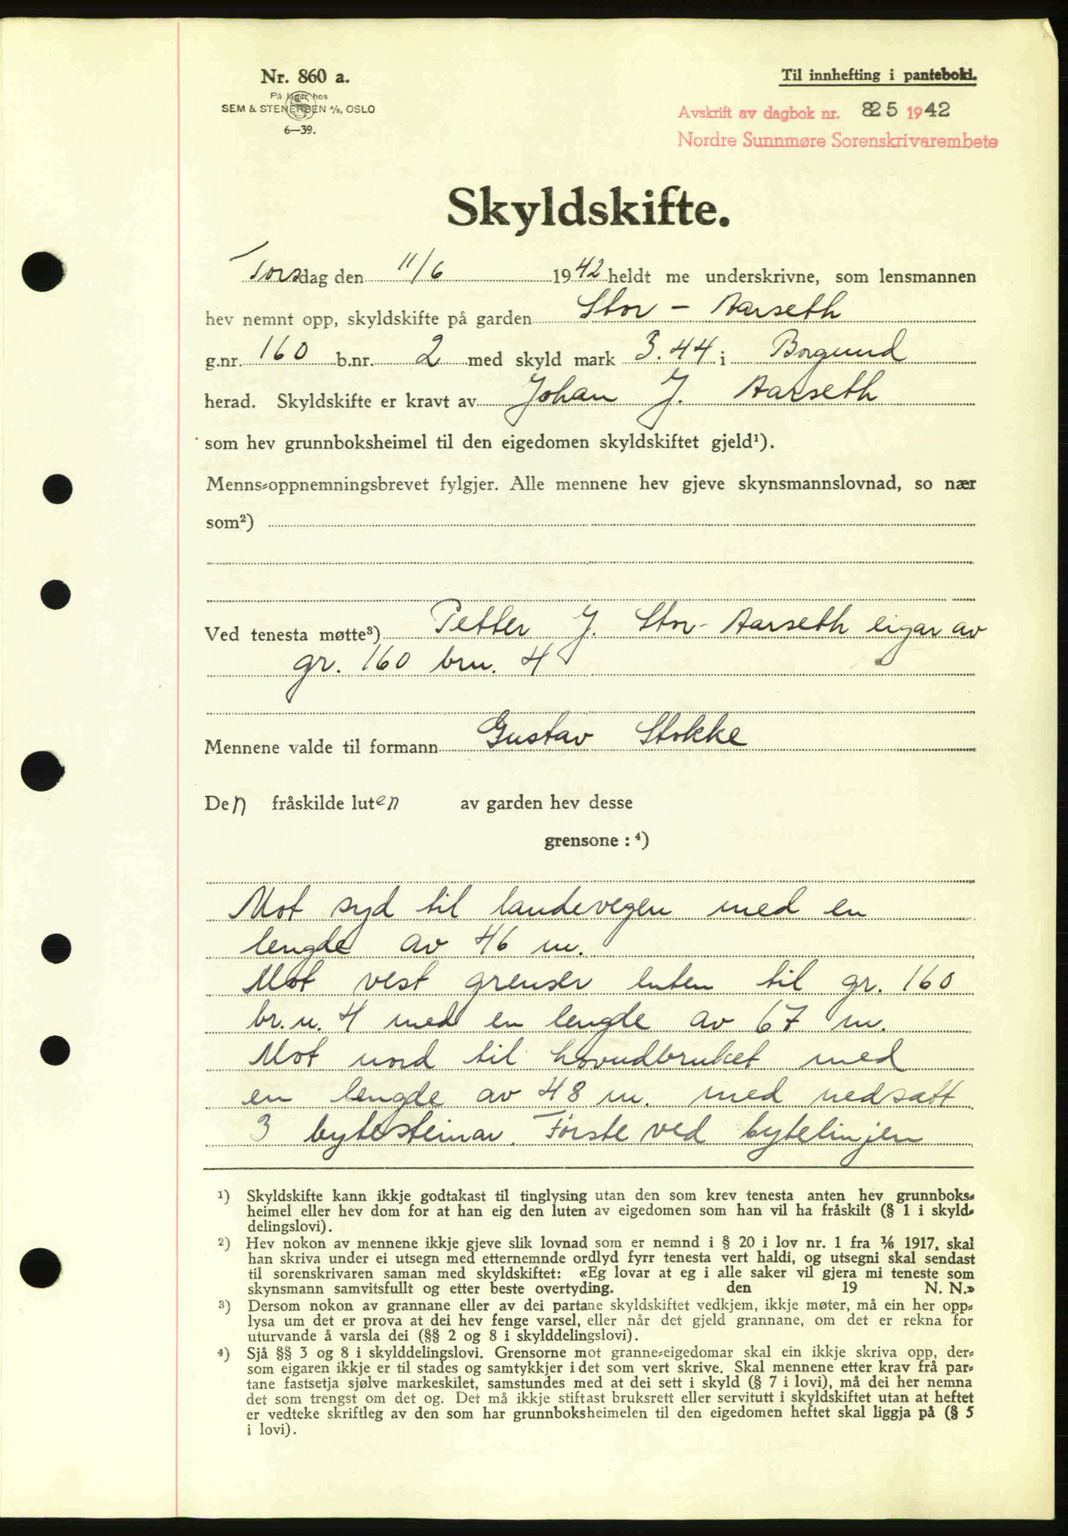 Nr. 860 a.
På lager hos
SEM & STENERSEN A/S, OSLO
6—39.
Til innhefting i pantebok.
Avskrift av dagbok nr. 825 1942
Nordre Sunnmøre Sorenskrivarembete
Skyldskifte.
Torsdag den 11/6 1942 heldt me underskrivne, som lensmannen
hev nemnt opp, skyldskifte på garden Stor - Aarseth
g.nr. 160 b.nr. 2 med skyld mark 3.44 i Borgund
herad. Skyldskifte er kravt av Johan J. Aarseth
som hev grunnboksheimel til den eigedomen skyldskiftet gjeld¹).
Menns-oppnemningsbrevet fylgjer. Alle mennene hev gjeve skynsmannslovnad, so nær
som²)
Ved tenesta møtte³) Petter J. Stor-Aarseth eigar av
gr. 160 brn. 4
Mennene valde til formann Gustav Stokke
Den fråskilde luten av garden hev desse
grensone : ⁴)
Mot syd til landevegen med en
lengde av 46 m.
Mot vest grenser luten til gr. 160
br.n. 4 med en lengde av 67 m.
Mot nord til hovudbruket med
en lengde av 48 m. med nedsatt
3 bytesteinar. Første ved bytelinjen
¹) Skyldskifte kann ikkje godtakast til tinglysing utan den som krev tenesta anten hev grunnboks-
heimel eller hev dom for at han eig den luten av eigedomen som han vil ha fråskilt (§ 1 i skyld-
delingslovi).
²) Hev nokon av mennene ikkje gjeve slik lovnad som er nemnd i § 20 i lov nr. 1 fra 1/6 1917, skal
han skriva under ei utsegn med etternemnde ordlyd fyrr tenesta vert haldi, og utsegni skal sendast
til sorenskrivaren saman med skyldskiftet: «Eg lovar at eg i alle saker vil gjera mi teneste som
skynsmann samvitsfullt og etter beste overtyding. den 19 N. N.»
³) Dersom nokon av grannane eller av dei partane skyldskiftet vedkjem, ikkje møter, må ein her opp-
lysa um det er prova at dei hev fenge varsel, eller når det gjeld grannane, om det er rekna for
uturvande å varsla dei (§§ 2 og 8 i skylddelingslovi).
⁴) Sjå §§ 3 og 8 i skylddelingslovi. Grensorne mot granne-eigedomar skal ein ikkje skriva opp, der-
som eigaren ikkje er til stades og samtykkjer i det som vert skrive. Skal mennene etter krav frå par-
tane fastsetja sjølve markeskilet, samstundes med at dei sett i skyld (§ 7 i lovi), må dei her nemna
det som trengst om det og. Det må ikkje stiftast bruksrett eller servitutt i skyldskiftet utan at heftet
er vedteke skriftleg av den som har grunnboksheimelen til den eigedomen heftet skal liggja på (§ 5
i lovi).